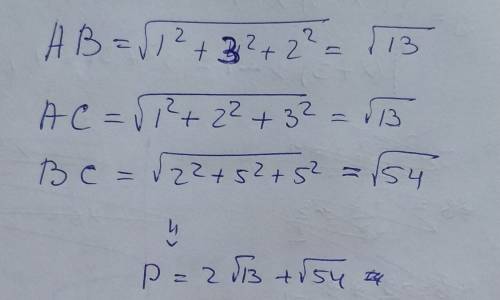 AB = √(1² + 3² + 2²) = √13
AC = √(1² + 2² + 3²) = √13
BC = √(2² + 5² + 5²) = √54
P = 2√13 + √54